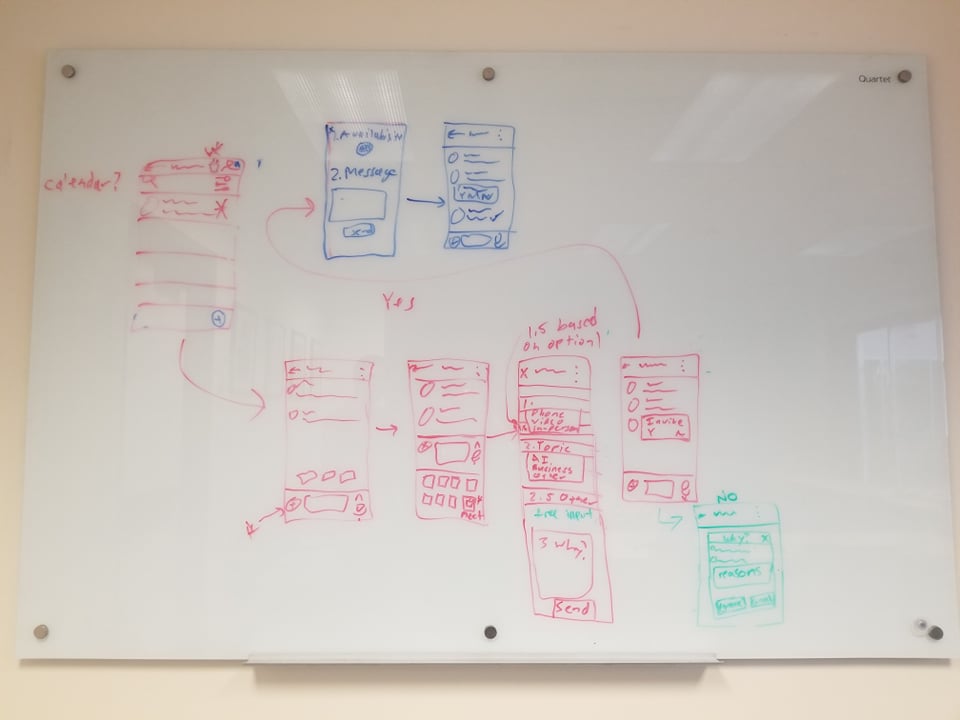 Quartet
calendar?
1. Availability
2. Message
Send
Y N
Yes
1.5 based
on option1
1.
Phone
video
in-person
2. Topic
A I.
Business
other
2.5 Other
free input
3 why?
Send
Meet
Invite
Y N
NO
why? X
reasons